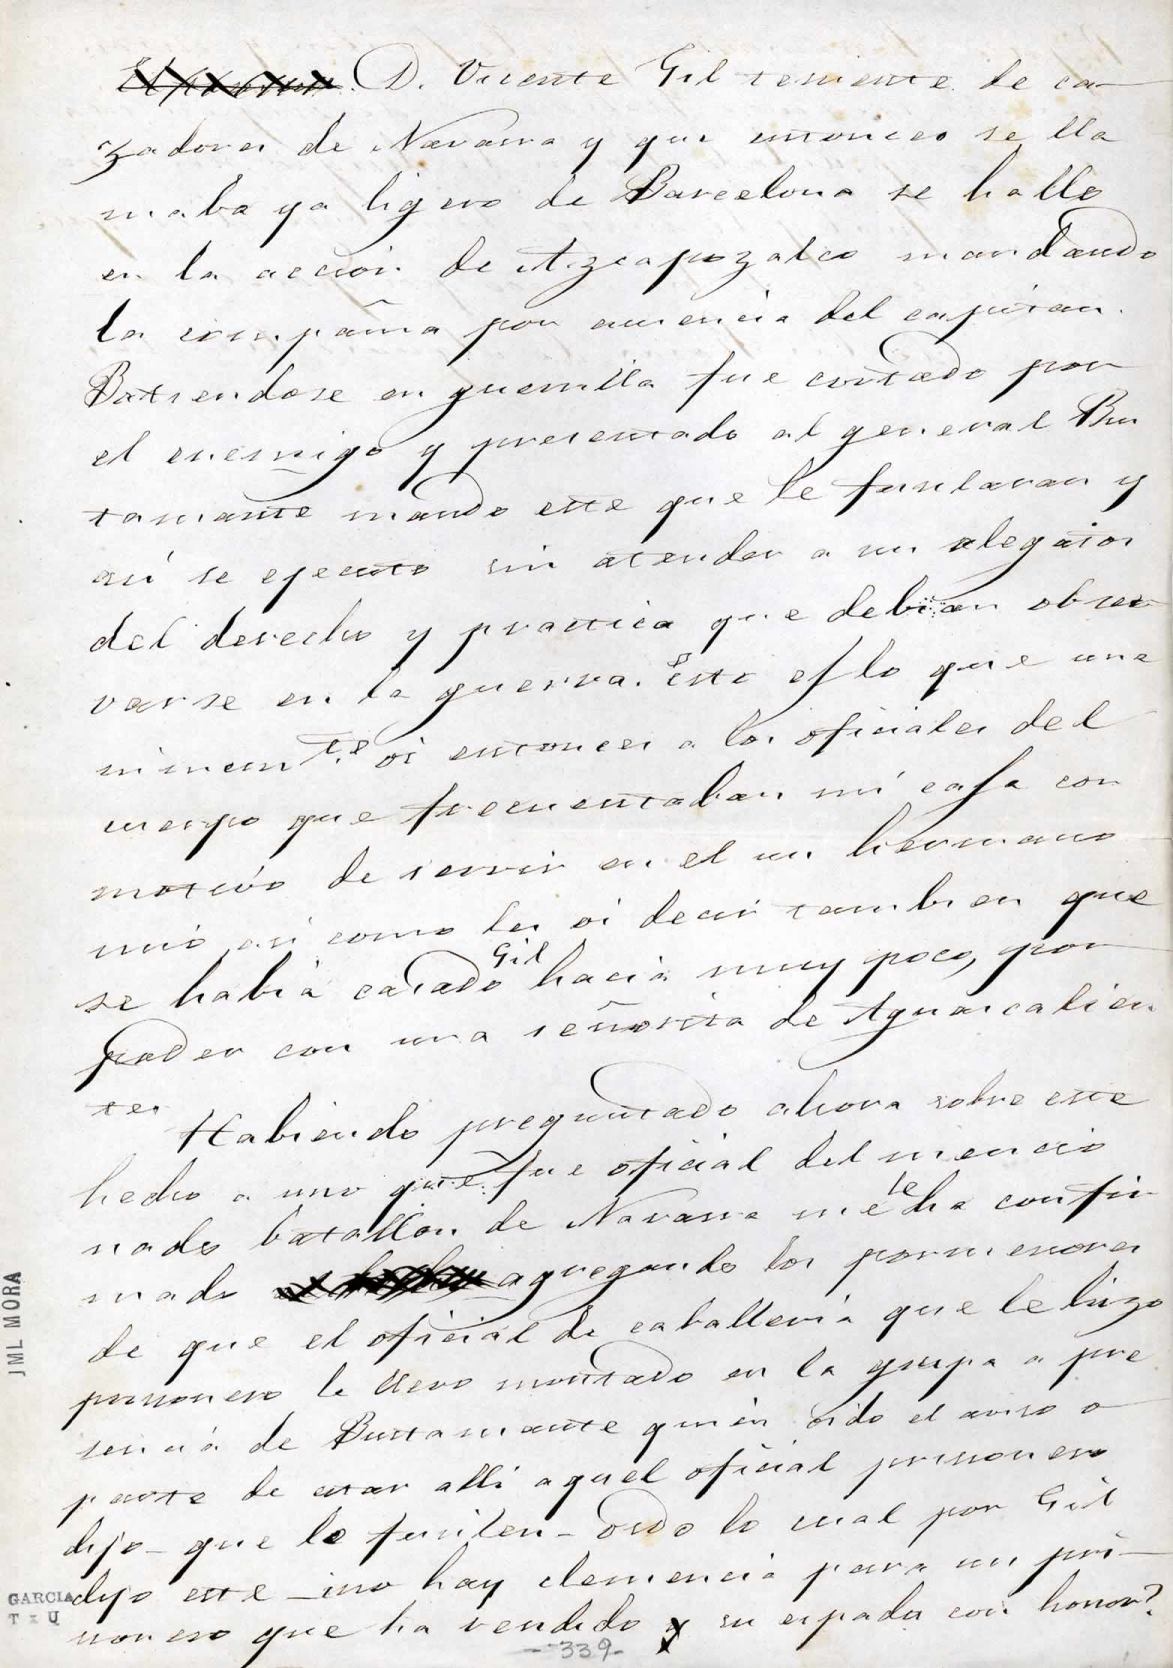 D. Vicente Gil teniente de ca-
zadores de Navarra y que entonces se lla
maba ya ligero de Barcelona se hallo
en la accion de Azcapozalco mandando
la compañia por ausencia del capitan.
Batiendose en guerrilla fue cortado por
el enemigo y presentado al general Bus
tamante mandó este que le fusilaran y
asi se ejecutó sin atender a sus alegatos
del derecho y practica que debian obser
varse en la guerra. Esto es lo que una
nimemte. oi entonces a los oficiales del
cuerpo que frecuentaban mi casa con
motivo de servir en el un hermano
mio asi como les oi decir tambien que
se habia casado Gil hacia muy poco, por
poder con una señorita de Aguascalien
tes
Habiendo preguntado ahora sobre este
hecho a uno que fue oficial del mencio
nado batallon de Navarra me le ha confir
mado agregando los pormenores
de que el oficial de caballeria que le hizo
prisionero le llevo montado en la grupa a pre
sencia de Bustamante quien oido el aviso o
parte de estar alli aquel oficial prisionero
dijo - que le fusilen - oido lo cual por Gil
dijo este - ¿no hay clemencia para un pri-
sionero que ha vendido su espada con honor?
-339-
JML MORA
GARCIA
T x U